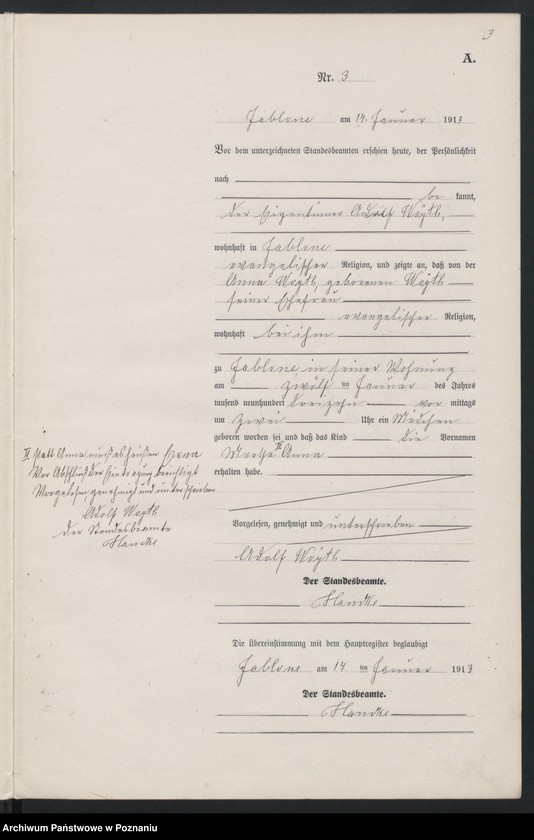 3
A.
Nr. 3
Jablone am 14. Januar 1913
Vor dem unterzeichneten Standesbeamten erschien heute, der Persönlichkeit
nach
be kannt,
der Eigentümer Adolf Woyth,
wohnhaft in Jablone
evangelischer Religion, und zeigte an, daß von der
Anna Woyth, geborenen Woyth
seiner Ehefrau
evangelischer Religion,
wohnhaft bei ihm
zu Jablone, in seiner Wohnung
am zwölf ten Januar des Jahres
tausend neunhundert dreizehn vor mittags
um zwei Uhr ein Mädchen
geboren worden sei und daß das Kind die Vornamen
Martha II Anna
erhalten habe.
II Statt Anna muß es heißen
Vor Abschluß der Eintragung berichtigt
Vorgelesen genehmigt und unterschrieben
Adolf Woyth
Der Standesbeamte
Handke
Vorgelesen, genehmigt und unterschrieben
Adolf Woyth
Der Standesbeamte.
Handke
Die Übereinstimmung mit dem Hauptregister beglaubigt
Jablone am 14 ten Januar 1913
Der Standesbeamte.
Handke
Archiwum Państwowe w Poznaniu